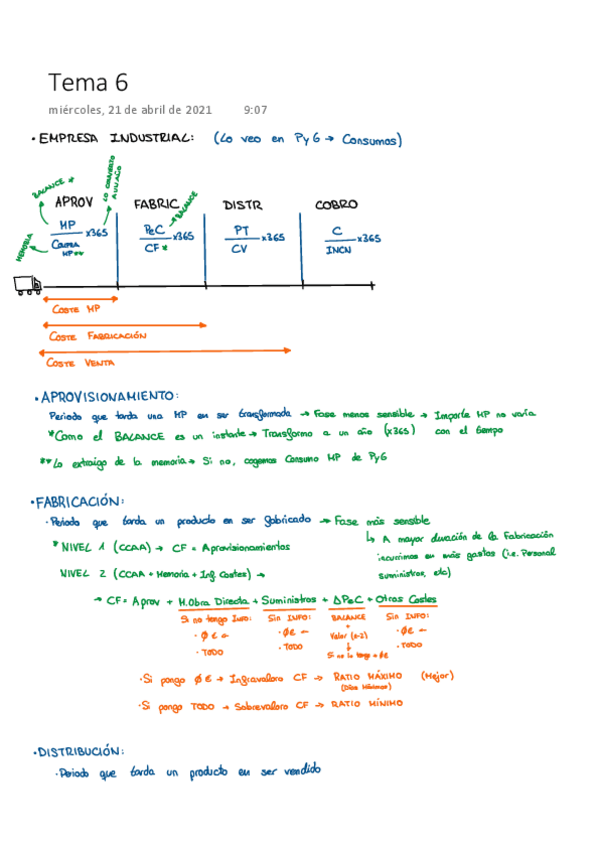 Tema 6
miércoles, 21 de abril de 2021 9:07
• EMPRESA INDUSTRIAL: (Lo veo en PyG → Consumos)
BALANCE *
LO CONVIERTO A UN AÑO
MEMORIA
BALANCE
APROV FABRIC DISTR COBRO
MP PeC PT C
x365 x365 x365 x365
MP** CF* CV INCN
COSTE MP
COSTE FABRICACIÓN
COSTE VENTA
• APROVISIONAMIENTO:
Periodo que tarda una MP en ser transformada → Fase menos sensible → Importe MP no varía
*Como el BALANCE es un instante → Transformo a un año (x365) con el tiempo
**Lo extraigo de la memoria → Si no, cogemos Consumo MP de PyG
• FABRICACIÓN:
• Periodo que tarda un producto en ser fabricado → Fase más sensible
↳ A mayor duración de la Fabricación
*NIVEL 1 (CCAA) → CF = Aprovisionamientos
incurrimos en más gastos (i.e. Personal
NIVEL 2 (CCAA + Memoria + Inf. Costes) →
suministros, etc)
→ CF = Aprov + M.Obra Directa + Suministros + ΔPeC + Otros Costes
Si no tengo INFO: Sin INFO: BALANCE Sin INFO:
• Ø € ← • Ø€ ← • Ø€ ←
Valor
• TODO • TODO • TODO
Si no lo tengo = Ø€
• Si pongo Ø€ → Infravaloro CF → RATIO MÁXIMO (Mejor)
(Días Mínimos)
• Si pongo TODO → Sobrevaloro CF → RATIO MÍNIMO
• DISTRIBUCIÓN:
• Periodo que tarda un producto en ser vendido